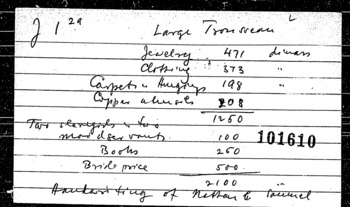 J 1 29 Large Trousseau L
Jewelry 471 dinars
Clothing 373 "
Carpets & Hangings 198 "
Copper utensils 208
1250
Two slavegirls & two
maidservants 100 101610
Books 250
Bride price 500
2100 "
Handwriting of Nathan b. Samuel